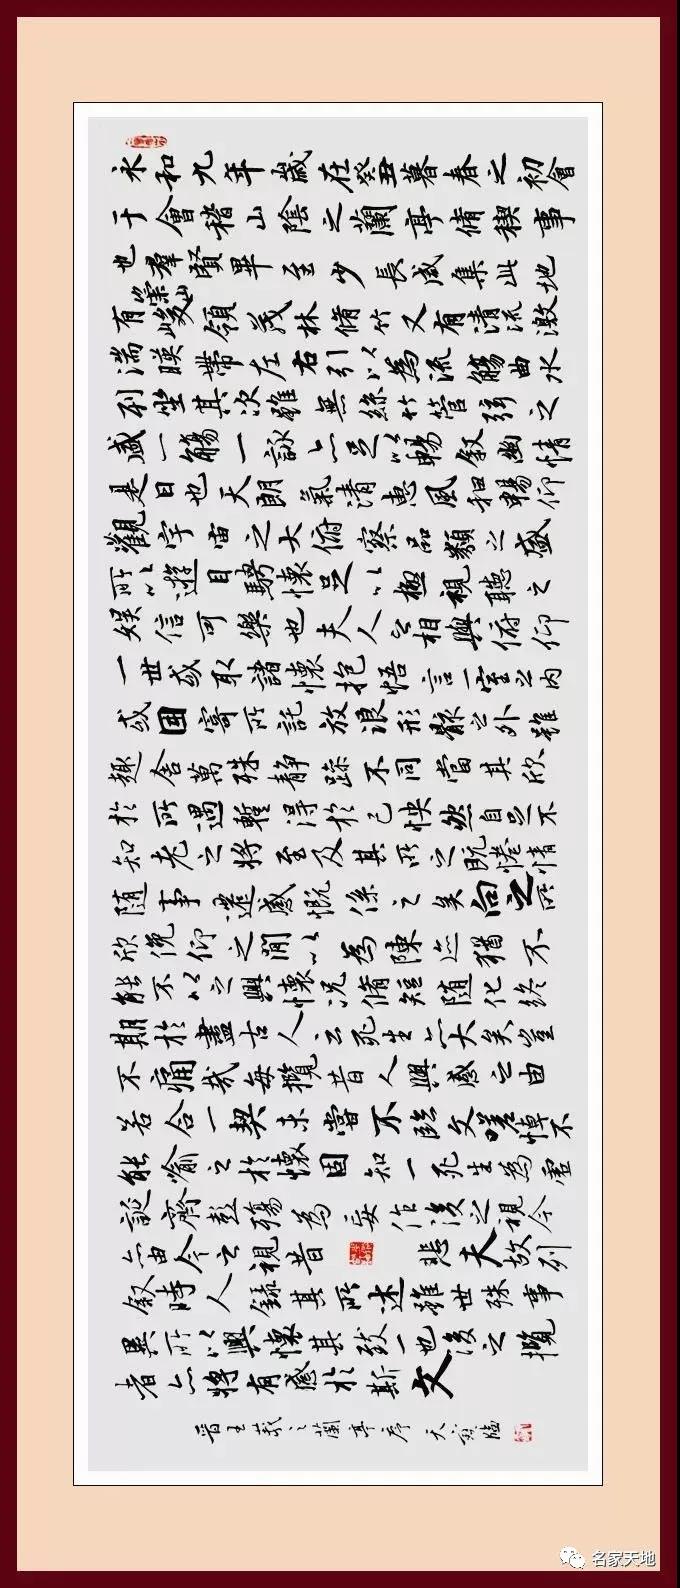 永和九年歲在癸丑暮春之初會
于會稽山陰之蘭亭脩稧事
也群賢畢至少長咸集此地
有崇山峻領茂林脩竹又有清流激
湍暎帶左右引以為流觴曲水
列坐其次雖無絲竹管弦之
盛一觴一詠亦足以暢敘幽情
是日也天朗氣清惠風和暢仰
觀宇宙之大俯察品類之盛
所以遊目騁懷足以極視聽之
娛信可樂也夫人之相與俯仰
一世或取諸懷抱悟言一室之內
或因寄所託放浪形骸之外雖
趣舍萬殊靜躁不同當其欣
於所遇暫得於己怏然自足不
知老之將至及其所之既惓情
隨事遷感慨係之矣向之所
欣俛仰之閒以為陳迹猶不
能不以之興懷況脩短隨化終
期於盡古人云死生亦大矣豈
不痛哉每攬昔人興感之由
若合一契未嘗不臨文嗟悼不
能喻之於懷固知一死生為虛
誕齊彭殤為妄作後之視今
亦由今之視昔 悲夫故列
敘時人錄其所述雖世殊事
異所以興懷其致一也後之攬
者亦將有感於斯文
晉王羲之蘭亭序 天 臨
名家天地